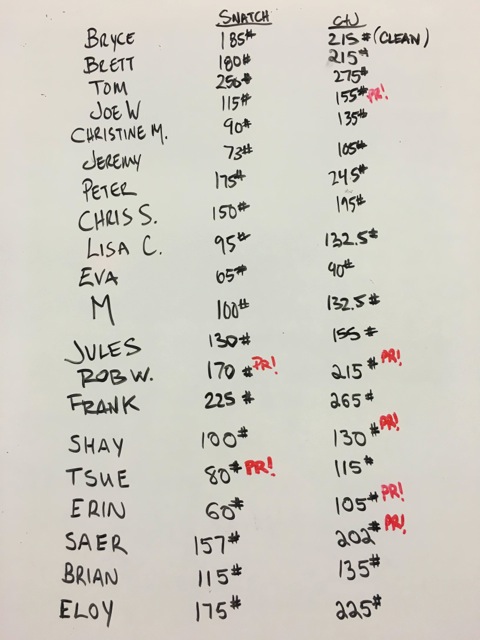 SNATCH C+J
BRYCE 185# 215# (CLEAN)
BRETT 180# 215#
TOM 250# 275#
JOE W 115# 155# PR!
CHRISTINE M. 90# 135#
JEREMY 73# 105#
PETER 175# 245#
CHRIS S. 150# 195#
LISA C. 95# 132.5#
EVA 65# 90#
M 100# 132.5#
JULES 130# 155#
ROB W. 170# PR! 215# PR!
FRANK 225# 265#
SHAY 100# 130# PR!
TSUE 80# PR! 115#
ERIN 60# 105# PR!
SAER 157# 202# PR!
BRIAN 115# 135#
ELOY 175# 225#